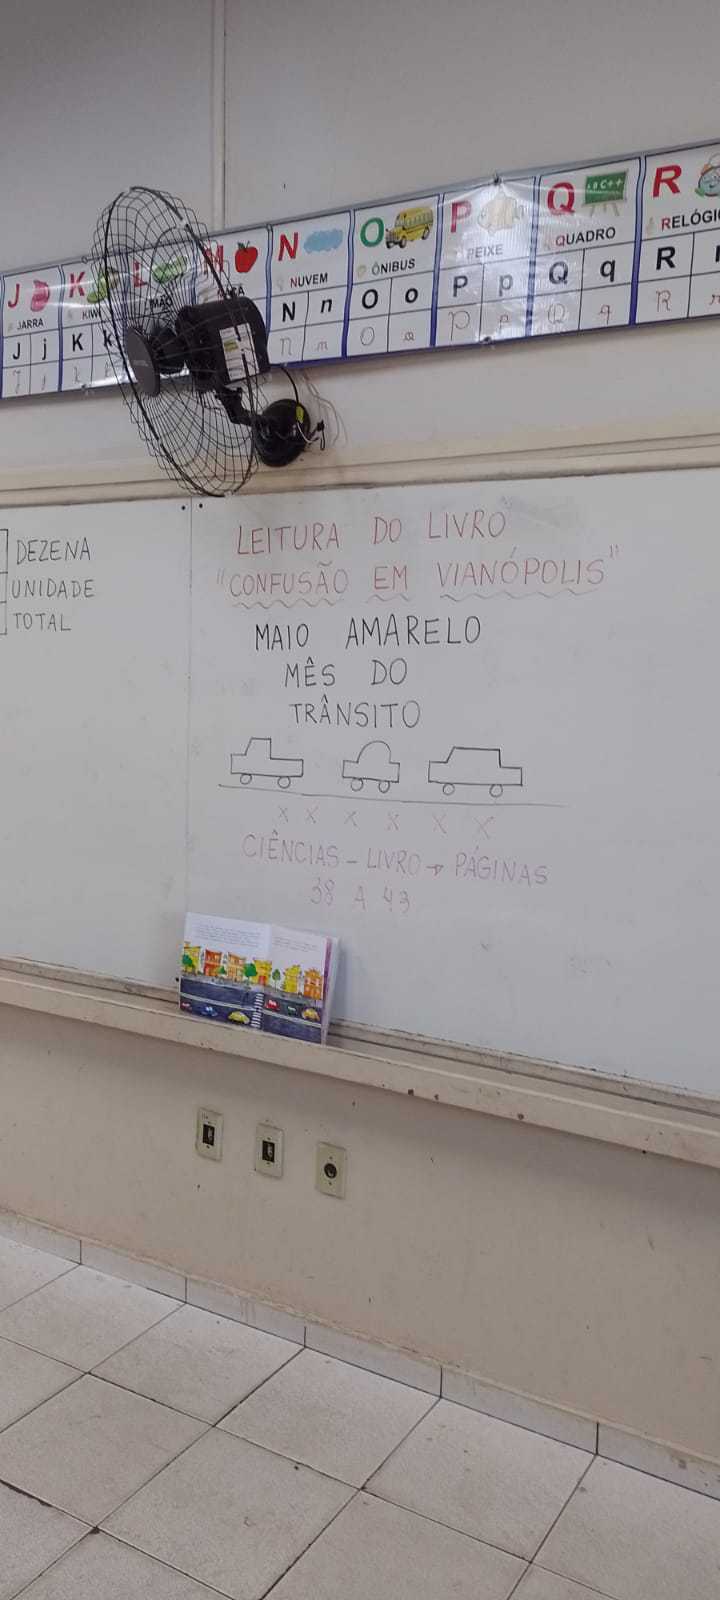 J
JARRA
J j
K
KIWI
K k
L
M
N
NUVEM
N n
N n
O
ÔNIBUS
O o
O o
P
PEIXE
P p
P p
Q
QUADRO
Q q
Q q
R
RELÓGI
R
R
DEZENA
UNIDADE
TOTAL
LEITURA DO LIVRO
"CONFUSÃO EM VIANÓPOLIS"
MAIO AMARELO
MÊS DO
TRÂNSITO
X X X X X X
CIÊNCIAS - LIVRO → PÁGINAS
38 A 43